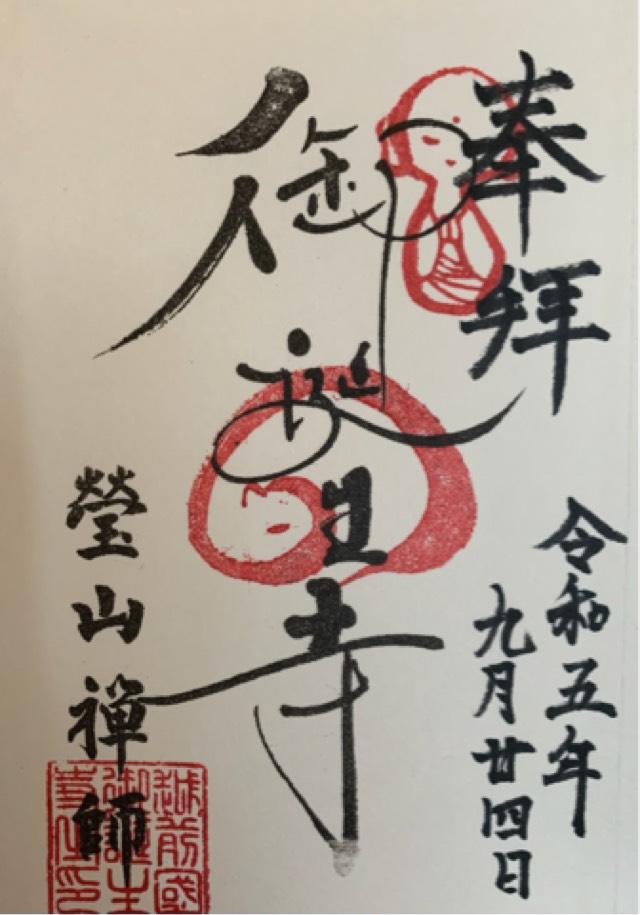 奉拝
令和五年
九月廿四日
御誕生寺
瑩山禅師
越前國
御誕生
寺之印